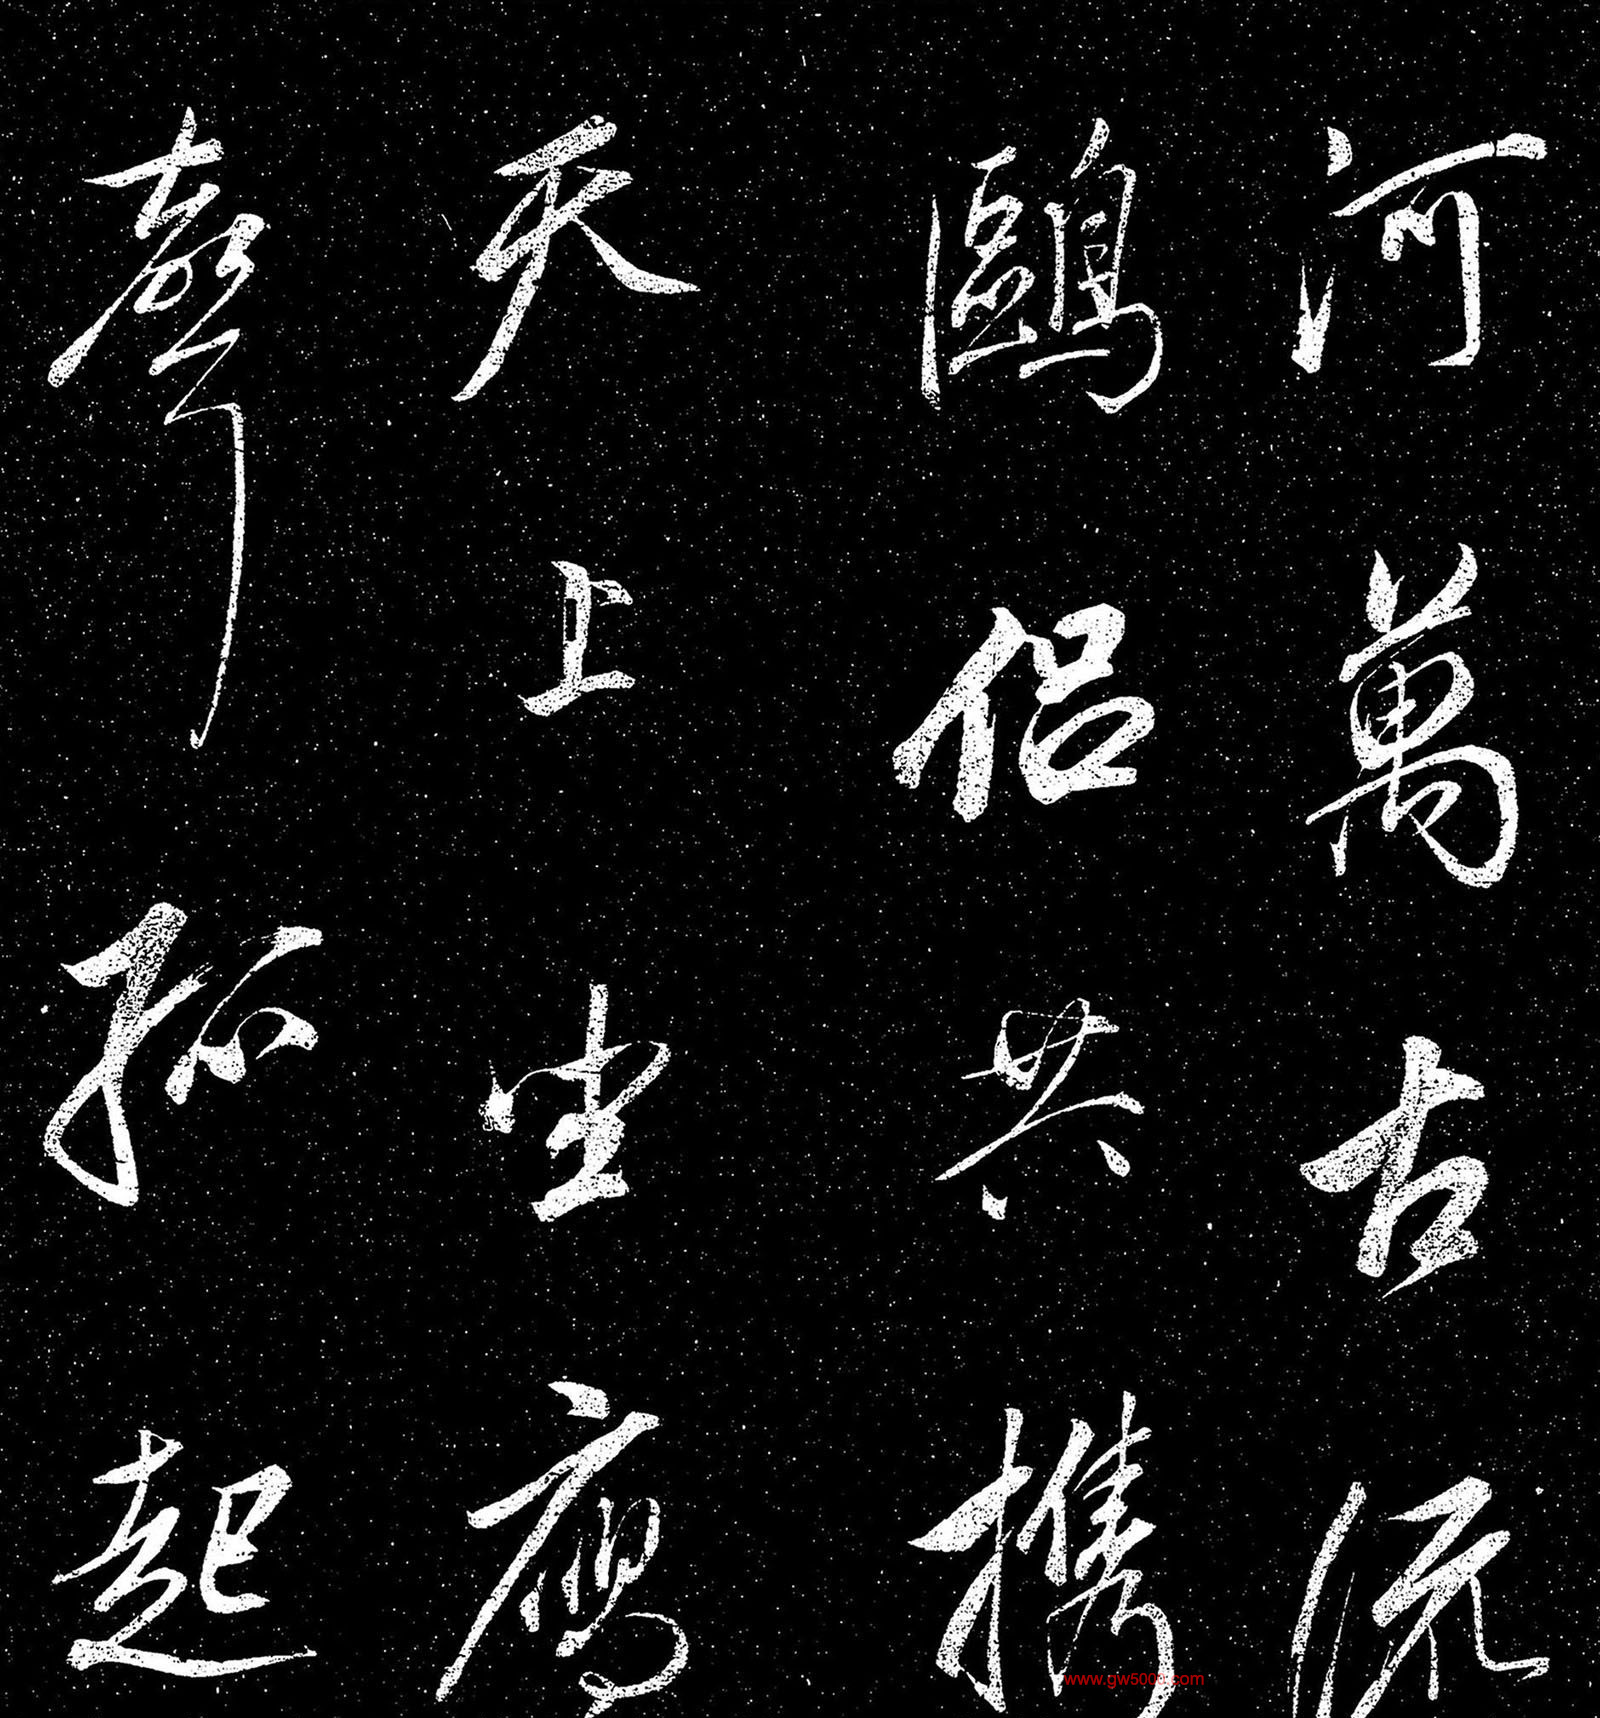 河萬古流
鷗侶共攜
天上坐鷹
聲孤起
www.gw500c.com